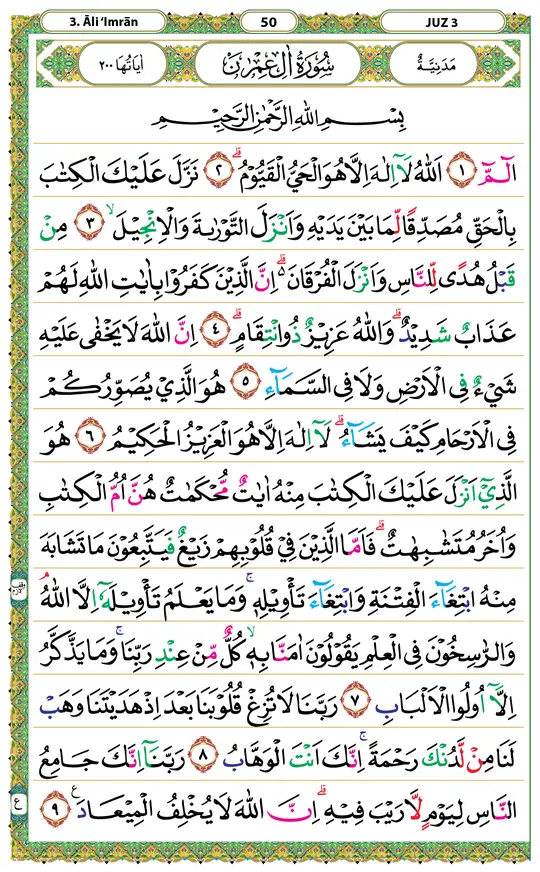 3. Āli ‘Imrān
50
JUZ 3
مَدَنِيَّةٌ
سُوْرَةُ اٰلِ عِمْرٰنَ
اٰيَاتُهَا ٢٠٠
بِسْمِ اللهِ الرَّحْمٰنِ الرَّحِيْمِ
الٓـمّٓ ۝١ اَللهُ لَآ اِلٰهَ اِلَّا هُوَ الْحَيُّ الْقَيُّوْمُ ۗ ۝٢ نَزَّلَ عَلَيْكَ الْكِتٰبَ
بِالْحَقِّ مُصَدِّقًا لِّمَا بَيْنَ يَدَيْهِ وَاَنْزَلَ التَّوْرٰىةَ وَالْاِنْجِيْلَ ۙ ۝٣ مِنْ
قَبْلُ هُدًى لِّلنَّاسِ وَاَنْزَلَ الْفُرْقَانَ ەۗ اِنَّ الَّذِيْنَ كَفَرُوْا بِاٰيٰتِ اللهِ لَهُمْ
عَذَابٌ شَدِيْدٌ ۗ وَاللهُ عَزِيْزٌ ذُو انْتِقَامٍ ۗ ۝٤ اِنَّ اللهَ لَا يَخْفٰى عَلَيْهِ
شَيْءٌ فِى الْاَرْضِ وَلَا فِى السَّمَاۤءِ ۝٥ هُوَ الَّذِيْ يُصَوِّرُكُمْ
فِى الْاَرْحَامِ كَيْفَ يَشَاۤءُ ۗ لَآ اِلٰهَ اِلَّا هُوَ الْعَزِيْزُ الْحَكِيْمُ ۝٦ هُوَ
الَّذِيْٓ اَنْزَلَ عَلَيْكَ الْكِتٰبَ مِنْهُ اٰيٰتٌ مُّحْكَمٰتٌ هُنَّ اُمُّ الْكِتٰبِ
وَاُخَرُ مُتَشٰبِهٰتٌ ۗ فَاَمَّا الَّذِيْنَ فِيْ قُلُوْبِهِمْ زَيْغٌ فَيَتَّبِعُوْنَ مَا تَشَابَهَ
مِنْهُ ابْتِغَاۤءَ الْفِتْنَةِ وَابْتِغَاۤءَ تَأْوِيْلِهٖ ۚ وَمَا يَعْلَمُ تَأْوِيْلَهٗٓ اِلَّا اللهُ ۘ
وَالرّٰسِخُوْنَ فِى الْعِلْمِ يَقُوْلُوْنَ اٰمَنَّا بِهٖ ۙ كُلٌّ مِّنْ عِنْدِ رَبِّنَا ۚ وَمَا يَذَّكَّرُ
اِلَّآ اُولُوا الْاَلْبَابِ ۝٧ رَبَّنَا لَا تُزِغْ قُلُوْبَنَا بَعْدَ اِذْ هَدَيْتَنَا وَهَبْ
لَنَا مِنْ لَّدُنْكَ رَحْمَةً ۚ اِنَّكَ اَنْتَ الْوَهَّابُ ۝٨ رَبَّنَآ اِنَّكَ جَامِعُ
النَّاسِ لِيَوْمٍ لَّا رَيْبَ فِيْهِ ۗ اِنَّ اللهَ لَا يُخْلِفُ الْمِيْعَادَ ࣖ ۝٩
ع